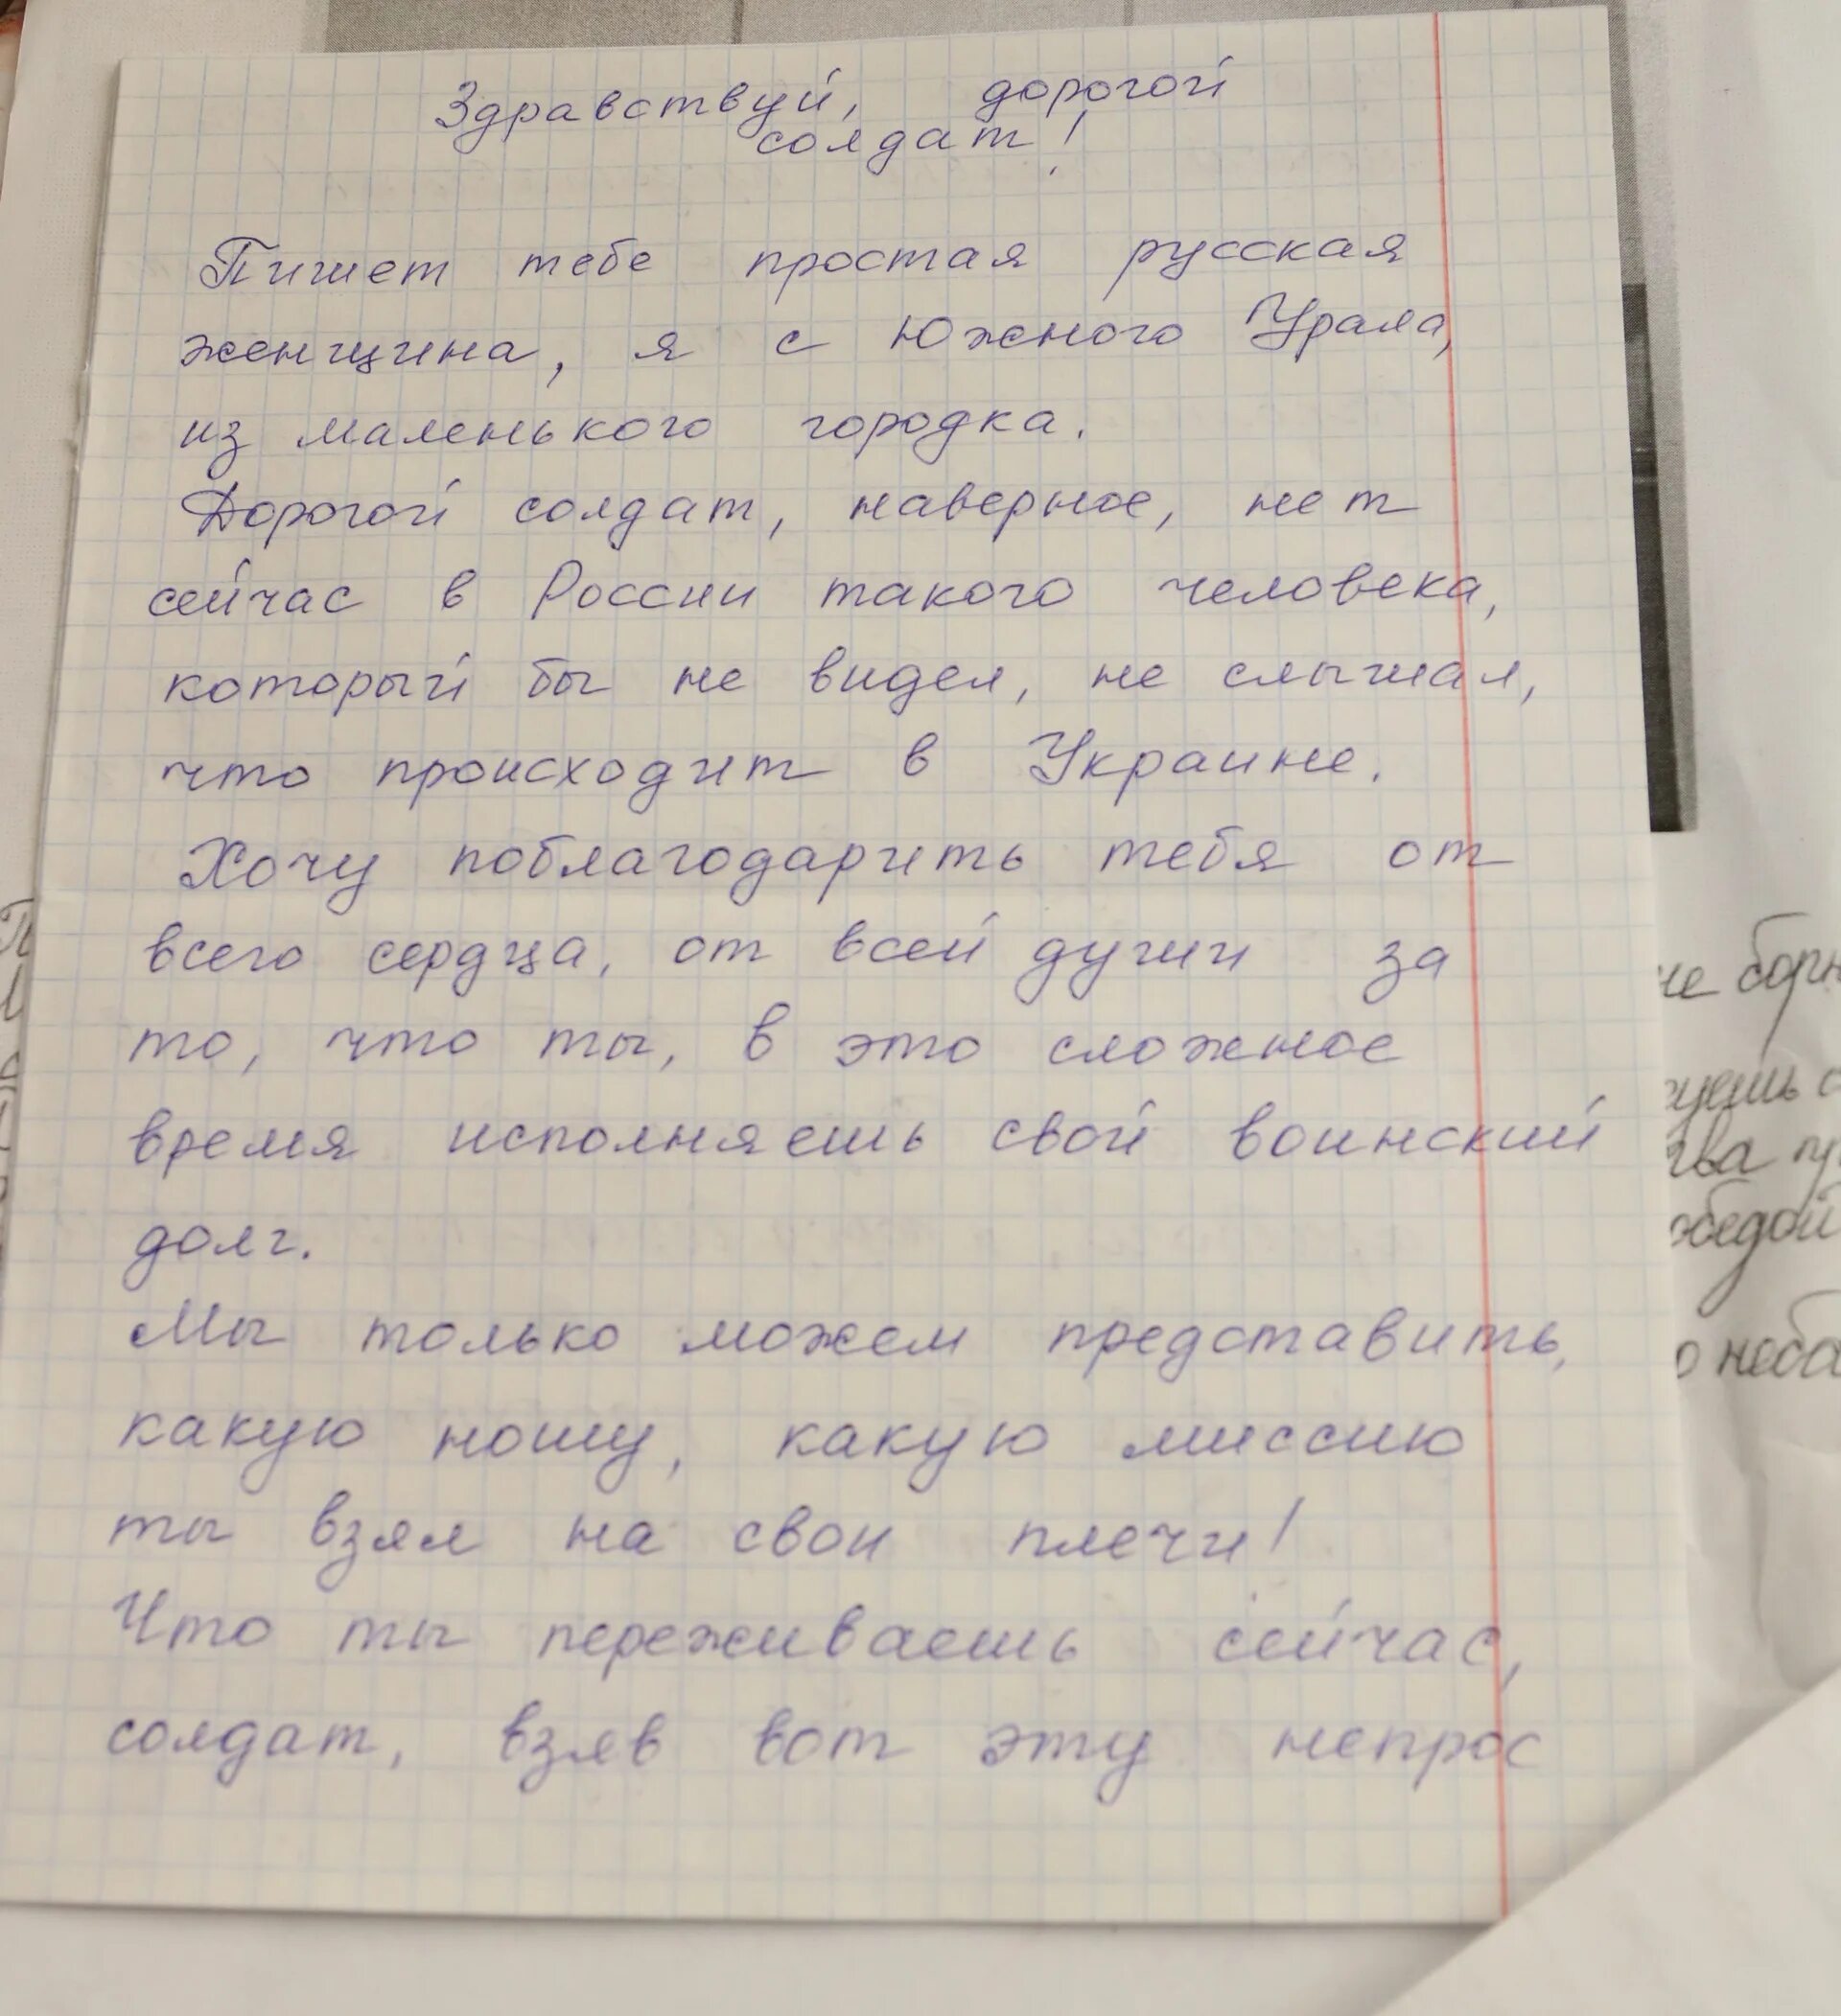 Здравствуй, дорогой
солдат!
Пишет тебе простая русская
женщина, я с Южного Урала,
из маленького городка.
Дорогой солдат, наверное, нет
сейчас в России такого человека,
который бы не видел, не слышал,
что происходит в Украине.
Хочу поблагодарить тебя от
всего сердца, от всей души за
то, что ты, в это сложное
время исполняешь свой воинский
долг.
Мы только можем представить,
какую ношу, какую миссию
ты взял на свои плечи!
Что ты переживаешь сейчас,
солдат, взяв вот эту непрос